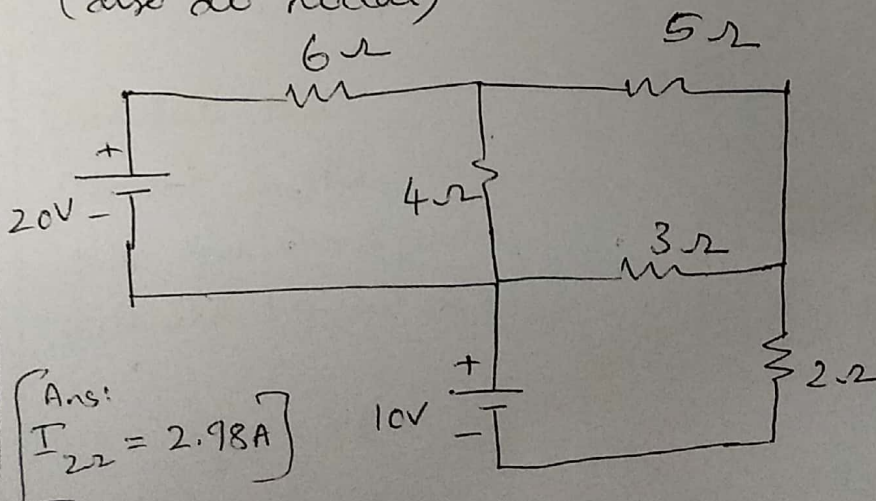 6Ω
5Ω
+
20V -
4Ω
3Ω
+
10V
-
2Ω
Ans:
I₂Ω = 2.98A